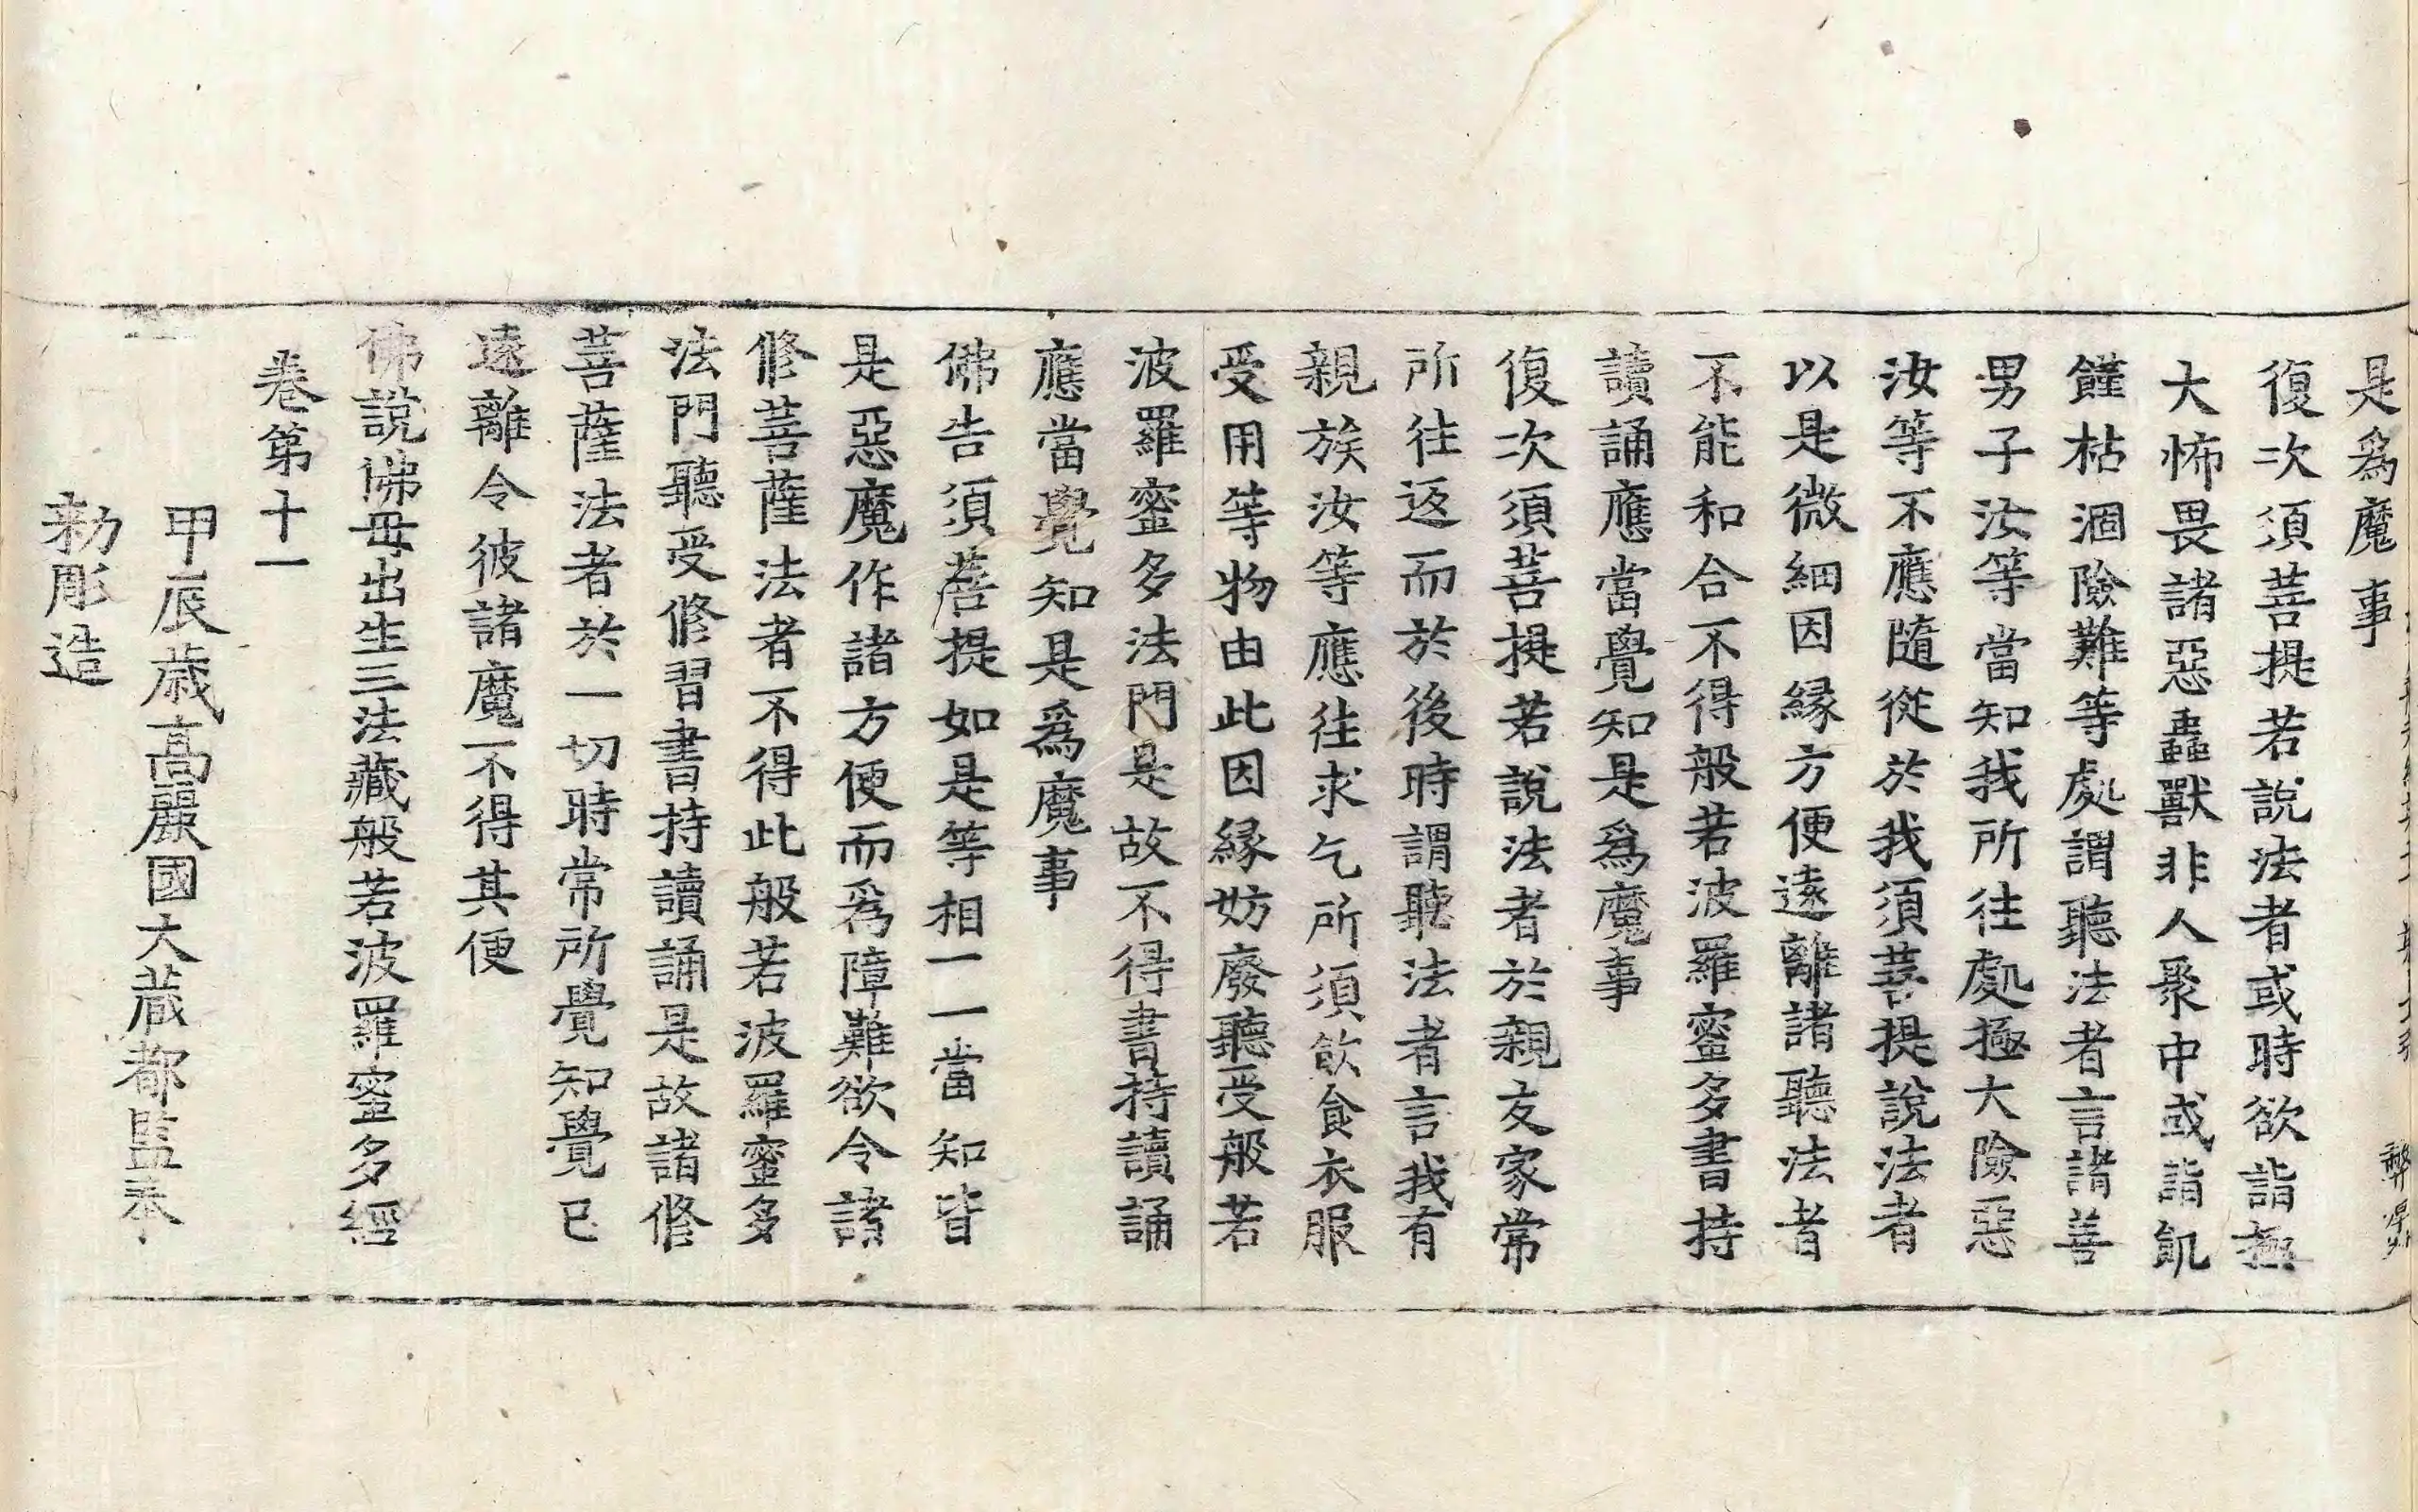 是爲魔事
復次須菩提若說法者或時欲詣極
大怖畏諸惡蟲獸非人聚中或詣飢
饉枯涸險難等處謂聽法者言諸善
男子汝等當知我所往處極大險惡
汝等不應隨從於我須菩提說法者
以是微細因緣方便遠離諸聽法者
不能和合不得般若波羅蜜多書持
讀誦應當覺知是爲魔事
復次須菩提若說法者於親友家常
所往返而於後時謂聽法者言我有
親族汝等應往求乞所須飲食衣服
受用等物由此因緣妨廢聽受般若
波羅蜜多法門是故不得書持讀誦
應當覺知是爲魔事
佛告須菩提如是等相一一當知皆
是惡魔作諸方便而爲障難欲令諸
修菩薩法者不得此般若波羅蜜多
法門聽受修習書持讀誦是故諸修
菩薩法者於一切時常所覺知覺已
遠離令彼諸魔不得其便
佛說佛母出生三法藏般若波羅蜜多經
卷第十一
甲辰歲高麗國大藏都監奉
勅彫造